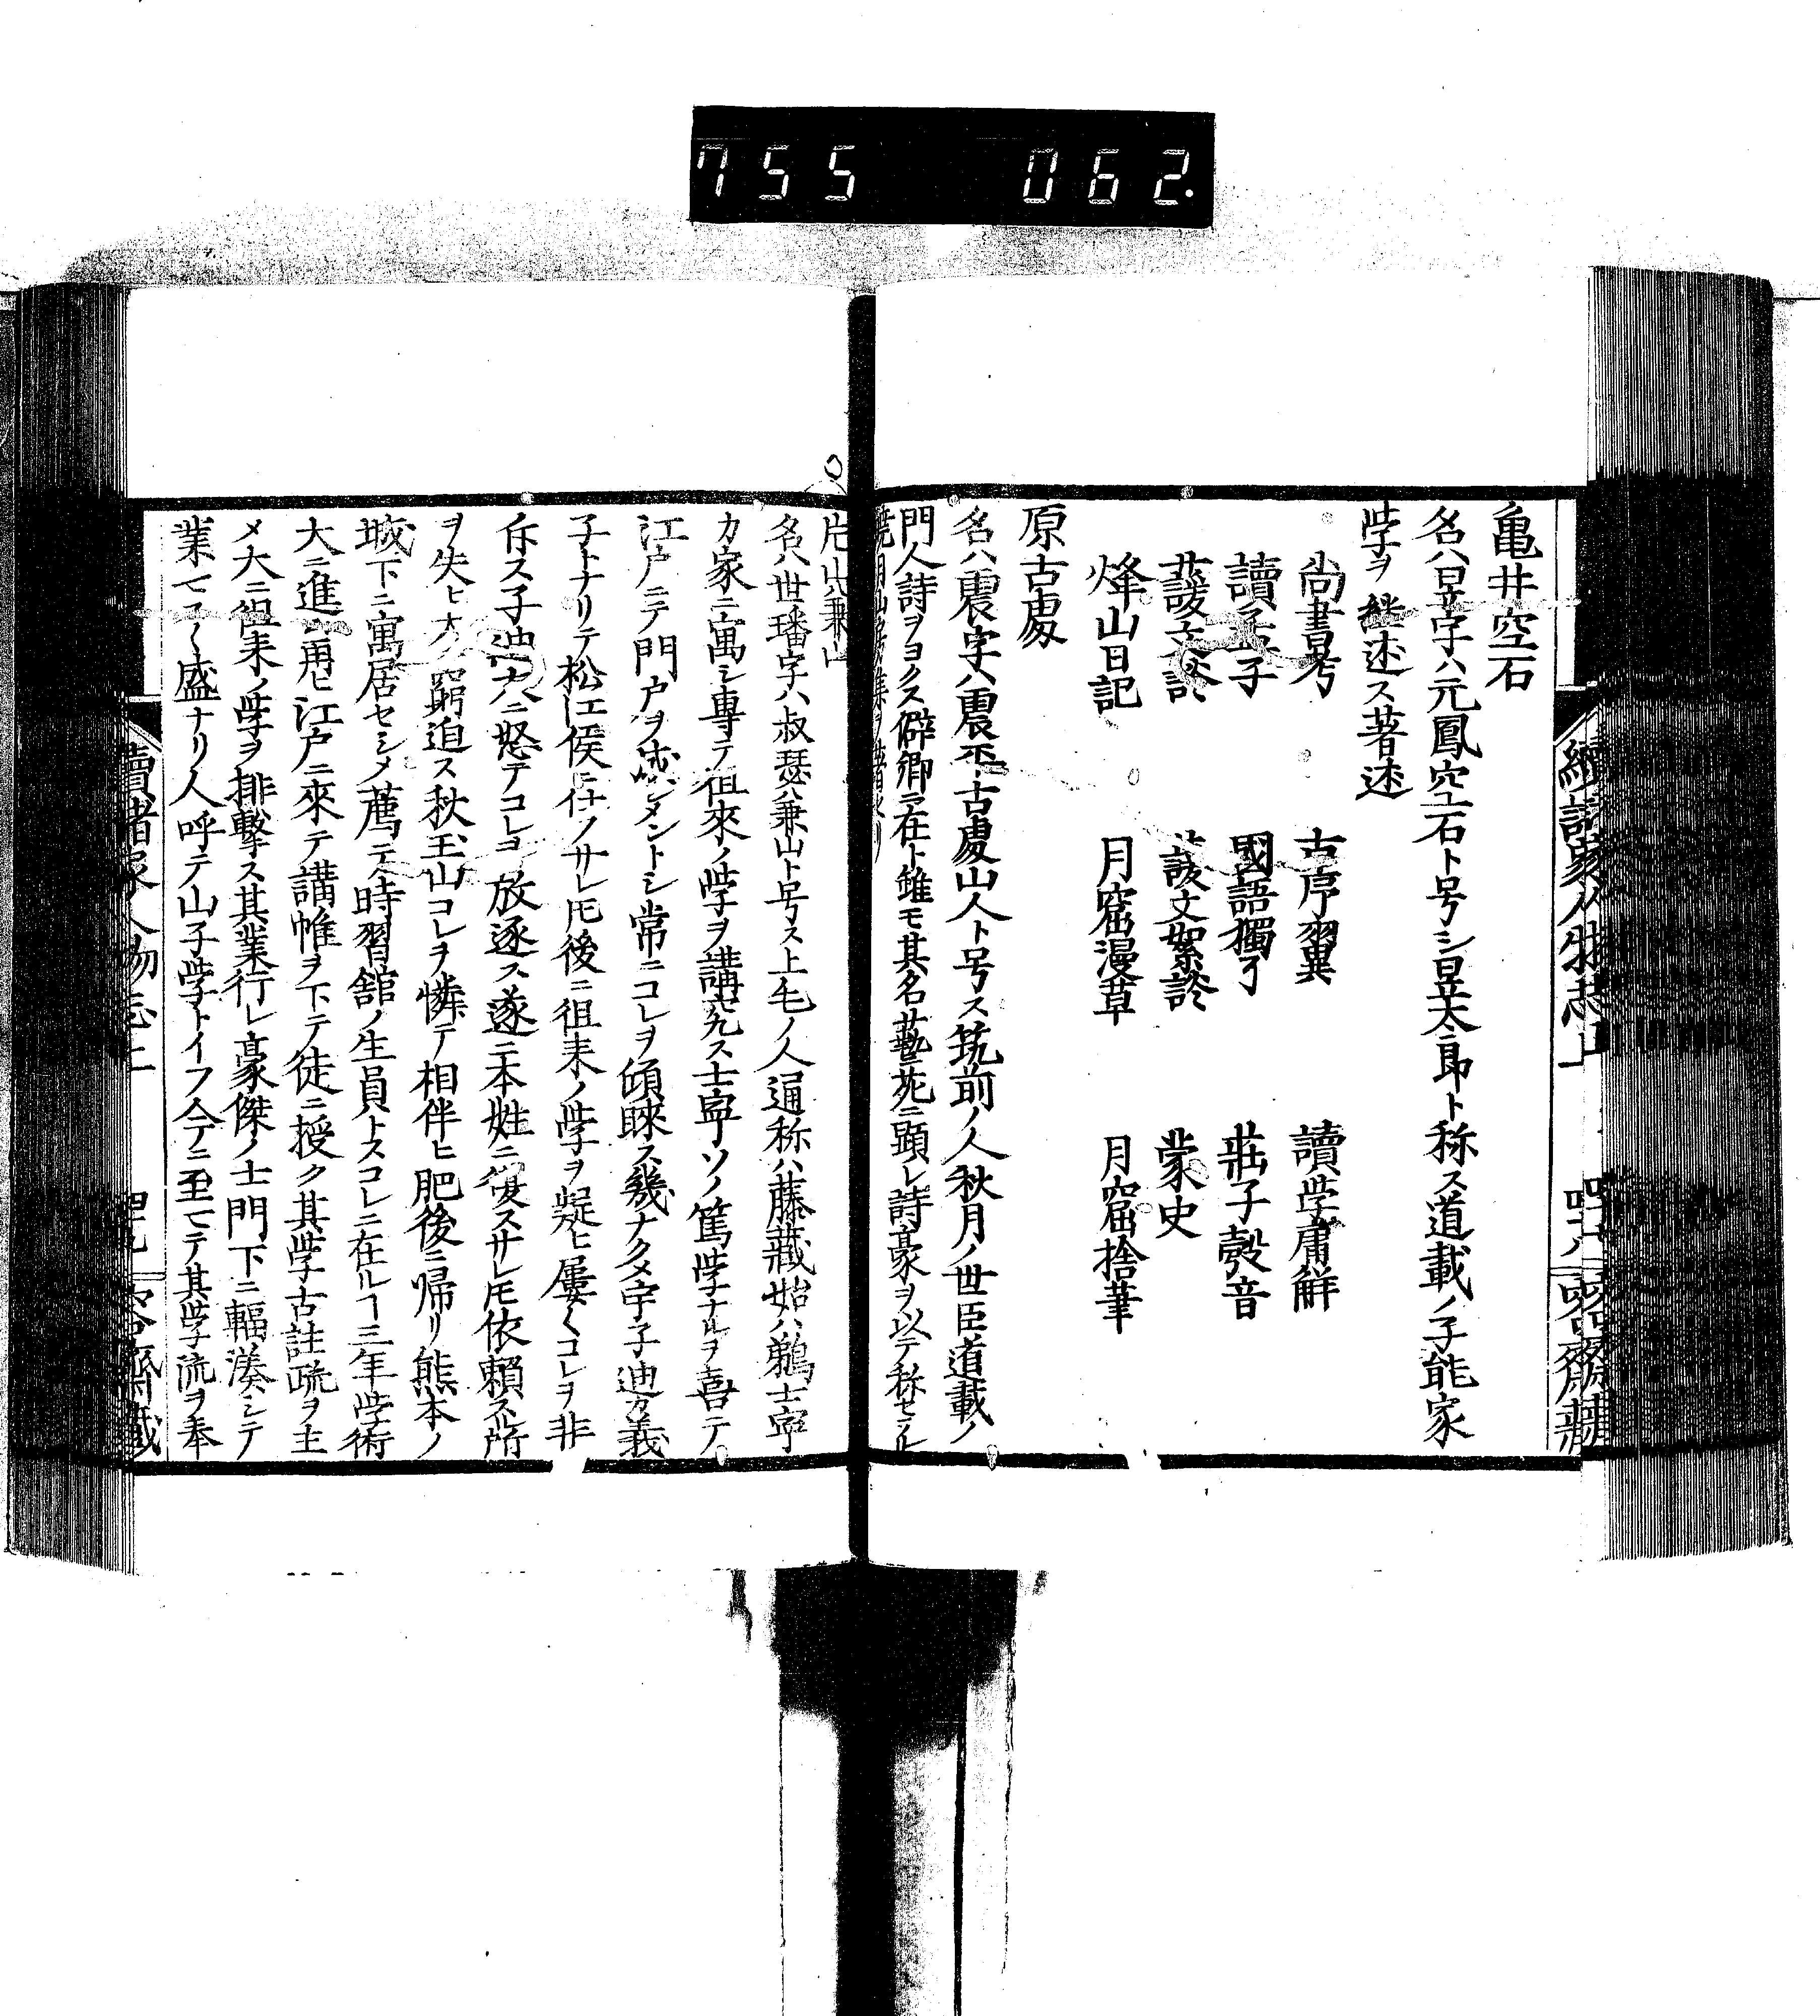 755 062.
亀井空石
名ハ昱字ハ元鳳空石ト号シ昱太郎ト称ス道載ノ子能家
学ヲ継述ス著述
尚書考 古序翼 讀学庸觧
讀孟子 國語獨了 莊子瑴音
蘐文談 蘐文絮談 蒙史
烽山日記 月窟漫草 月窟捨筆
原古處
名ハ震字ハ震平古處山人ト号ス筑前ノ人秋月ノ世臣道載ノ
門人詩ヲヨクス僻郷ニ在ト雖モ其名藝苑ニ顕レ詩豪ヲ以テ称セラル
續諸家人物志上 四十八 碧齋藏
片山兼山
名ハ世璠字ハ叔瑟兼山ト号ス上毛ノ人通称ハ藤藏始ハ鵜士寧
カ家ニ寓シ專テ徂來ノ学ヲ講究ス士寧ソノ篤学ナルヲ喜テ
江戸ニテ門戸ヲ成シメントシ常ニコレヲ傾睞ス幾ナクメ宇子迪カ義
子トナリテ松江侯ニ仕ノサレ𪜈後ニ徂来ノ学ヲ疑ヒ屢〱コレヲ非
斥ス子迪大ニ怒テコレヲ放逐ス遂ニ本姓ニ復スサレ𪜈依頼ス所
ヲ失ヒ大ニ窮迫ス秋玉山コレヲ憐テ相伴ヒ肥後ニ帰リ熊本ノ
城下ニ寓居セシメ薦テ時習舘ノ生員トスコレニ在ルヿ三年学術
大ニ進ミ再ヒ江戸ニ來テ講帷ヲ下テ徒ニ授ク其学古註疏ヲ主
メ大ニ徂来ノ学ヲ排撃ス其業行レ豪傑ノ士門下ニ輻湊シテ
業マス〱盛ナリ人呼テ山子学トイフ今ニ至マテ其学流ヲ奉